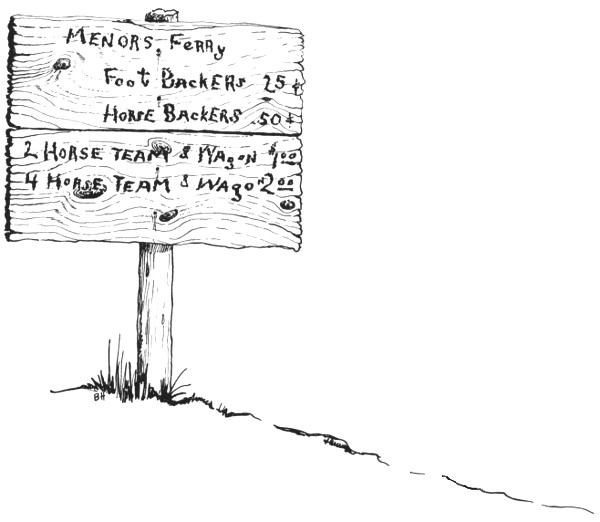 MENORS, FERRY
FOOT BACKERS 25¢
HORSE BACKERS .50¢
2 HORSE TEAM & WAGON $1.00
4 HORSE, TEAM & WAGON 2.00
BH